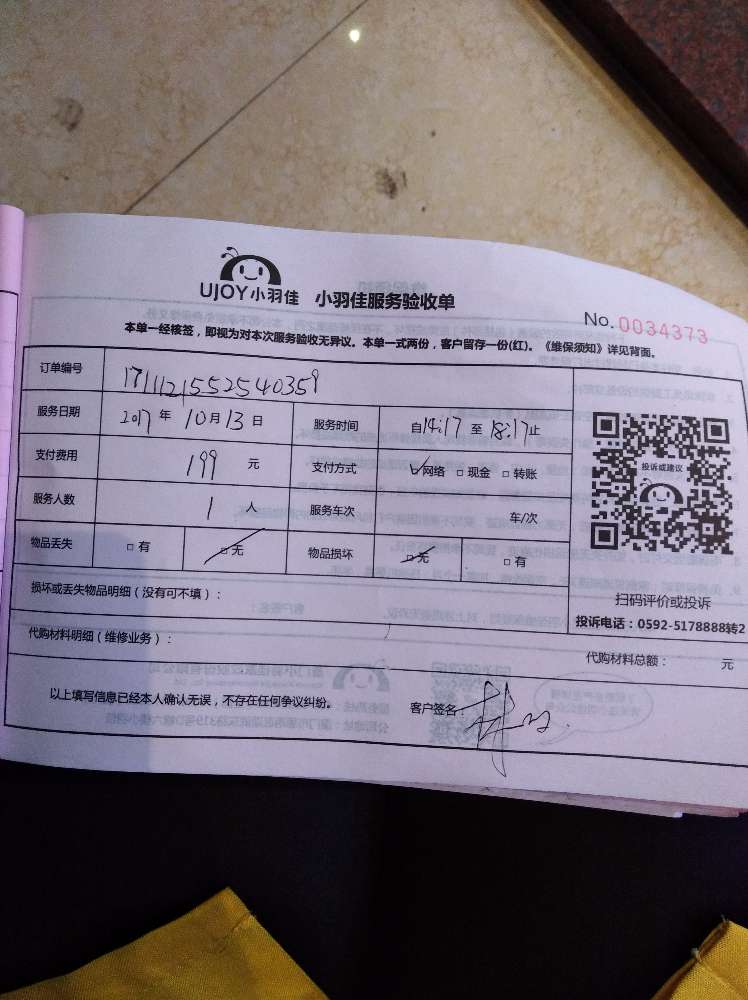 UJOY小羽佳 小羽佳服务验收单
No. 0034373
本单一经核签，即视为对本次服务验收无异议。本单一式两份，客户留存一份(红)。《维保须知》详见背面。
订单编号 1711121552540359
服务日期 2017 年 10 月 13 日 服务时间 自14:17 至 18:17止
支付费用 199 元 支付方式 ☑网络 □现金 □转账
投诉或建议
服务人数 1 人 服务车次 车/次
物品丢失 □有 □无 物品损坏 □无 □有
损坏或丢失物品明细（没有可不填）：
扫码评价或投诉
投诉电话：0592-5178888转2
代购材料明细（维修业务）： 代购材料总额： 元
以上填写信息已经本人确认无误，不存在任何争议纠纷。 客户签名：